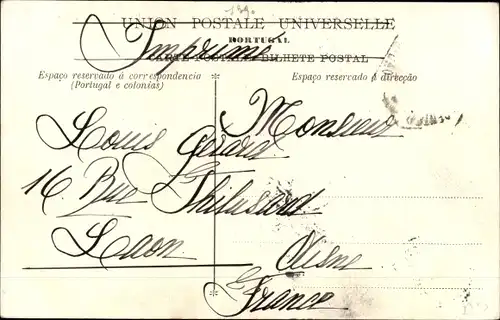 UNION POSTALE UNIVERSELLE
PORTUGAL
CARTE POSTALE BILHETE POSTAL
Imprimé
Espaço reservado á correspondencia
(Portugal e colonias)
Espaço reservado á direcção
Monsieur
Louis Gérard
16. Rue Thibesard
Laon
Aisne
France